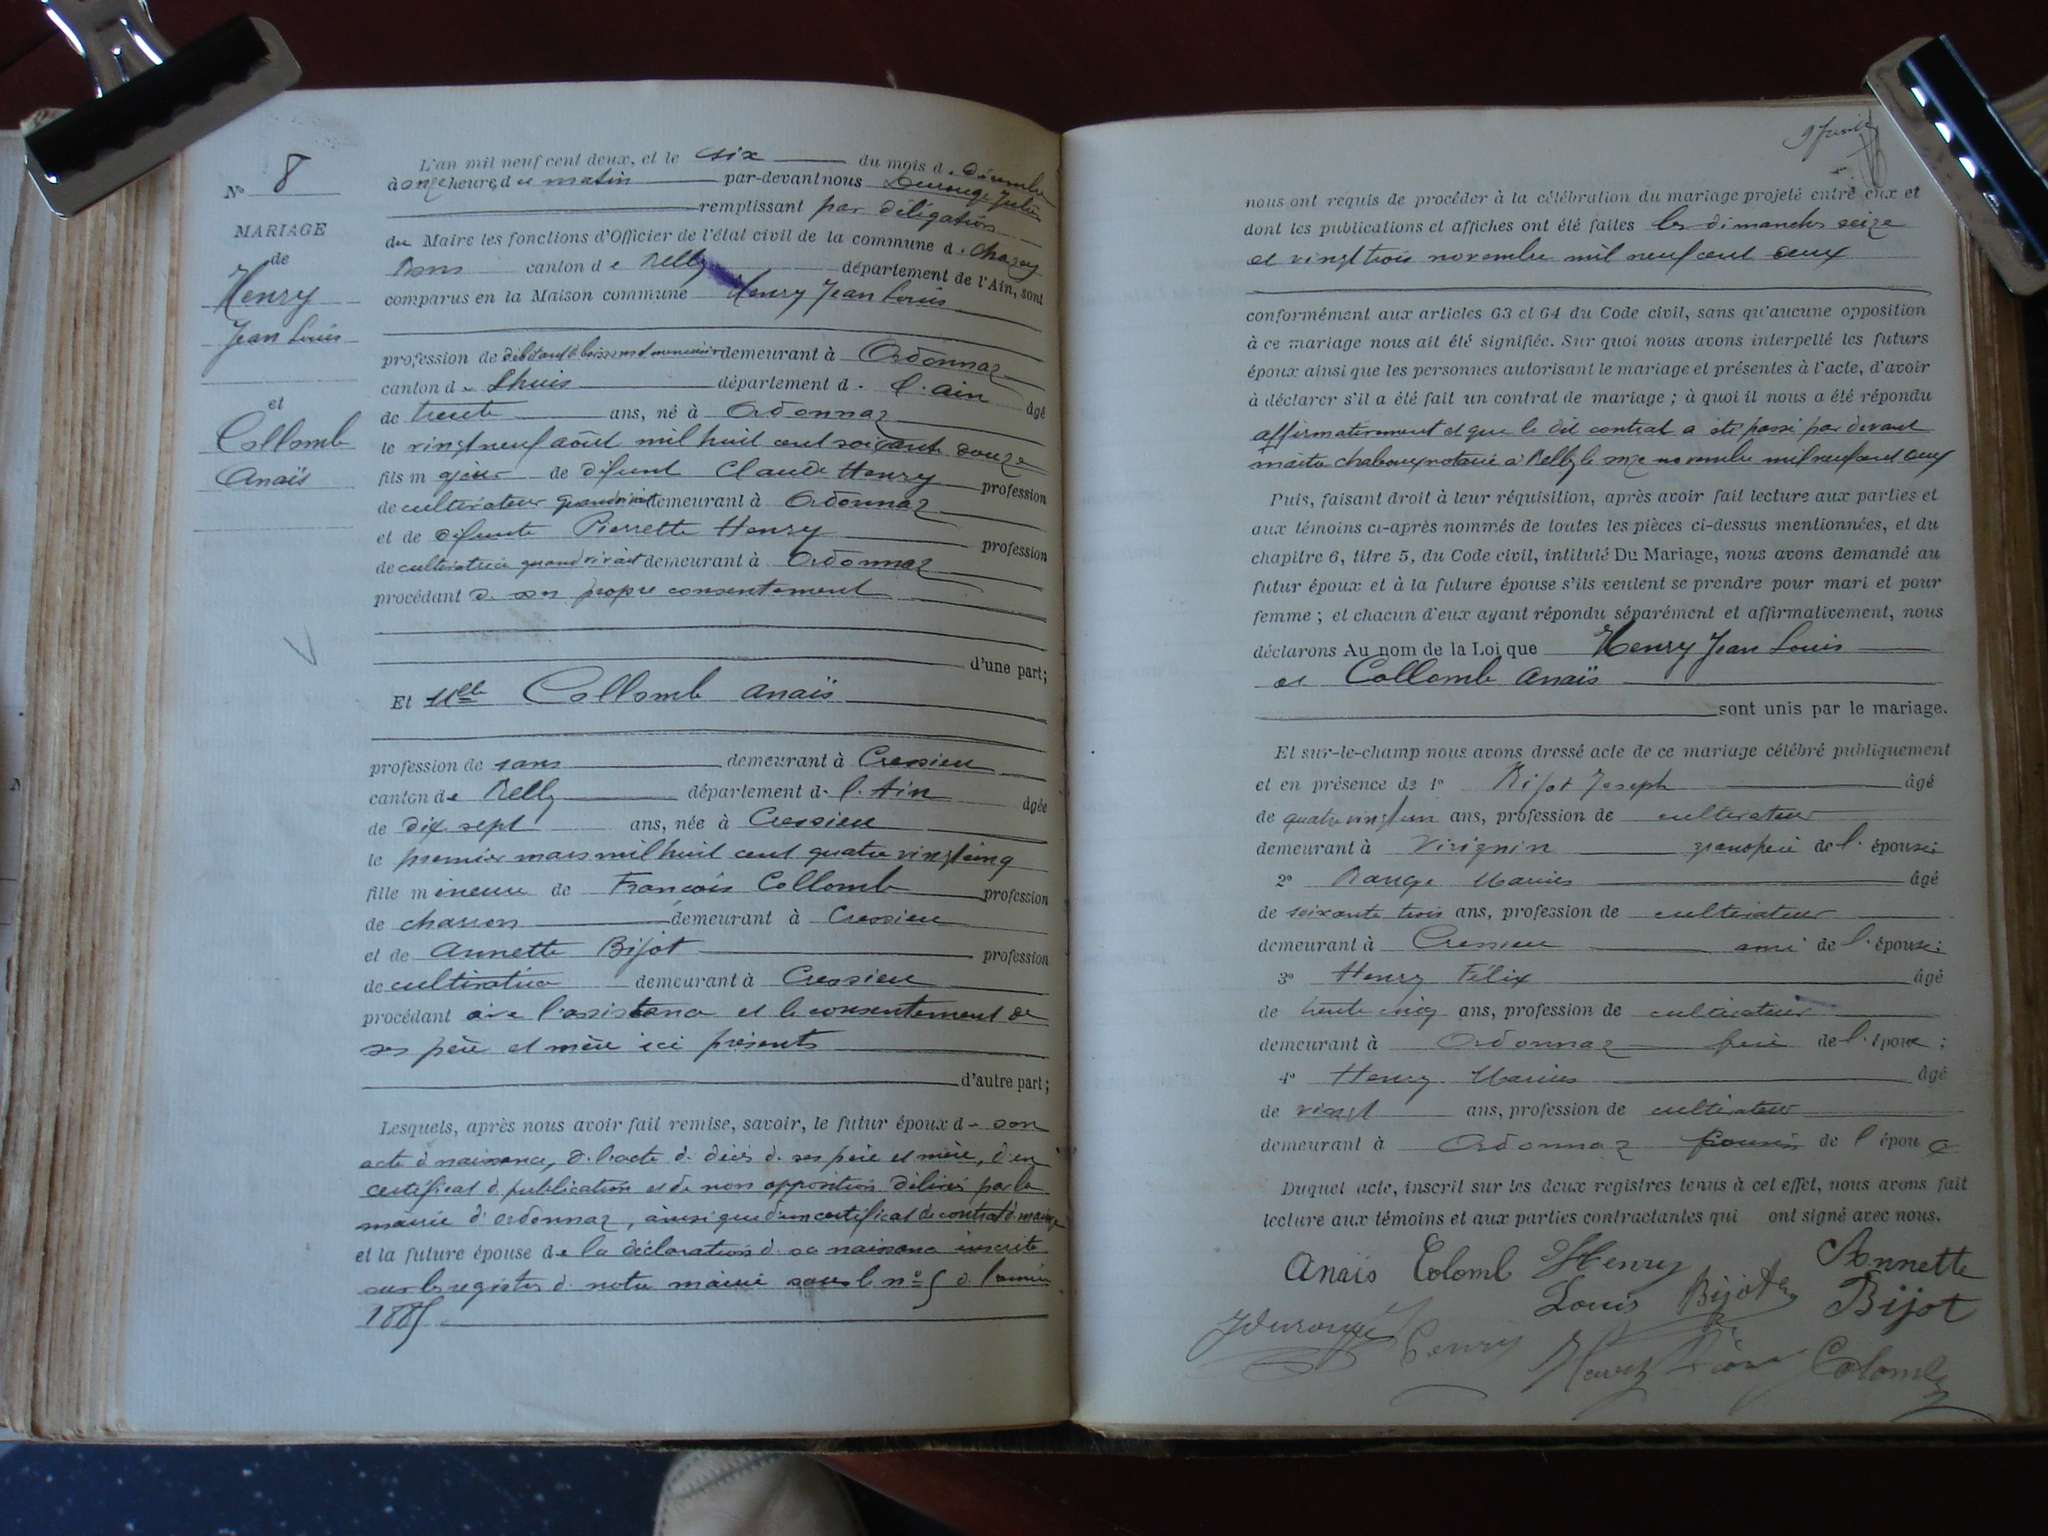 N° 8
MARIAGE
de
Henry
Jean Louis
et
Collomb
Anaïs
L'an mil neuf cent deux, et le six du mois de décembre
à onze heures du matin par-devant nous Durouge Julien
remplissant par délégation
du Maire les fonctions d'Officier de l'état civil de la commune de Chazey
Bons canton de Belley département de l'Ain, sont
comparus en la Maison commune Henry Jean Louis
profession de débitant de boissons et menuisier demeurant à Ordonnaz
canton de Lhuis département de l'ain âgé
de trente ans, né à Ordonnaz
le vingt neuf août mil huit cent soixante douze
fils majeur de défunt Claude Henry profession
de cultivateur quand vivait demeurant à Ordonnaz
et de défunte Pierrette Henry profession
de cultivatrice quand vivait demeurant à Ordonnaz
procédant de son propre consentement
d'une part;
Et Mlle Collomb anaïs
profession de sans demeurant à Cressieu
canton de Belley département de l'Ain âgée
de dix sept ans, née à Cressieu
le premier mars mil huit cent quatre vingt cinq
fille mineure de François Collomb profession
de charron demeurant à Cressieu
et de Annette Bijot profession
de cultivatrice demeurant à Cressieu
procédant avec l'assistance et le consentement de
ses père et mère ici présents
d'autre part;
Lesquels, après nous avoir fait remise, savoir, le futur époux de son
acte de naissance, de l'acte de décès de ses père et mère, d'un
certificat de publication et de non opposition délivré par la
mairie d'ordonnaz, ainsi que d'un certificat de contrat de mariage
et la future épouse de la déclaration de sa naissance inscrite
sur les registres de notre mairie sous le n° 5 de l'année
1885
nous ont requis de procéder à la célébration du mariage projeté entre eux et
dont les publications et affiches ont été faites les dimanches seize
et vingt trois novembre mil neuf cent deux
conformément aux articles 63 et 64 du Code civil, sans qu'aucune opposition
à ce mariage nous ait été signifiée. Sur quoi nous avons interpellé les futurs
époux ainsi que les personnes autorisant le mariage et présentes à l'acte, d'avoir
à déclarer s'il a été fait un contrat de mariage ; à quoi il nous a été répondu
affirmativement et que le dit contrat a été passé par devant
maître notaire à Belley le onze novembre mil neuf cent deux
Puis, faisant droit à leur réquisition, après avoir fait lecture aux parties et
aux témoins ci-après nommés de toutes les pièces ci-dessus mentionnées, et du
chapitre 6, titre 5, du Code civil, intitulé Du Mariage, nous avons demandé au
futur époux et à la future épouse s'ils veulent se prendre pour mari et pour
femme ; et chacun d'eux ayant répondu séparément et affirmativement, nous
déclarons Au nom de la Loi que Henry Jean Louis
et Collomb Anaïs
sont unis par le mariage.
Et sur-le-champ nous avons dressé acte de ce mariage célébré publiquement
et en présence de 1° Bijot Joseph âgé
de quatre vingt un ans, profession de cultivateur
demeurant à Virignin grand père de l'épouse;
2° Marius âgé
de soixante trois ans, profession de cultivateur
demeurant à Cressieu ami de l'épouse;
3° Henry Félix âgé
de trente cinq ans, profession de cultivateur
demeurant à Ordonnaz frère de l'époux;
4° Henry Marius âgé
de vingt ans, profession de cultivateur
demeurant à Ordonnaz cousin de l'époux
Duquel acte, inscrit sur les deux registres tenus à cet effet, nous avons fait
lecture aux témoins et aux parties contractantes qui ont signé avec nous.
Anais Colomb Henry Louis Bijot Annette Bijot
JDurouge Henry Colomb